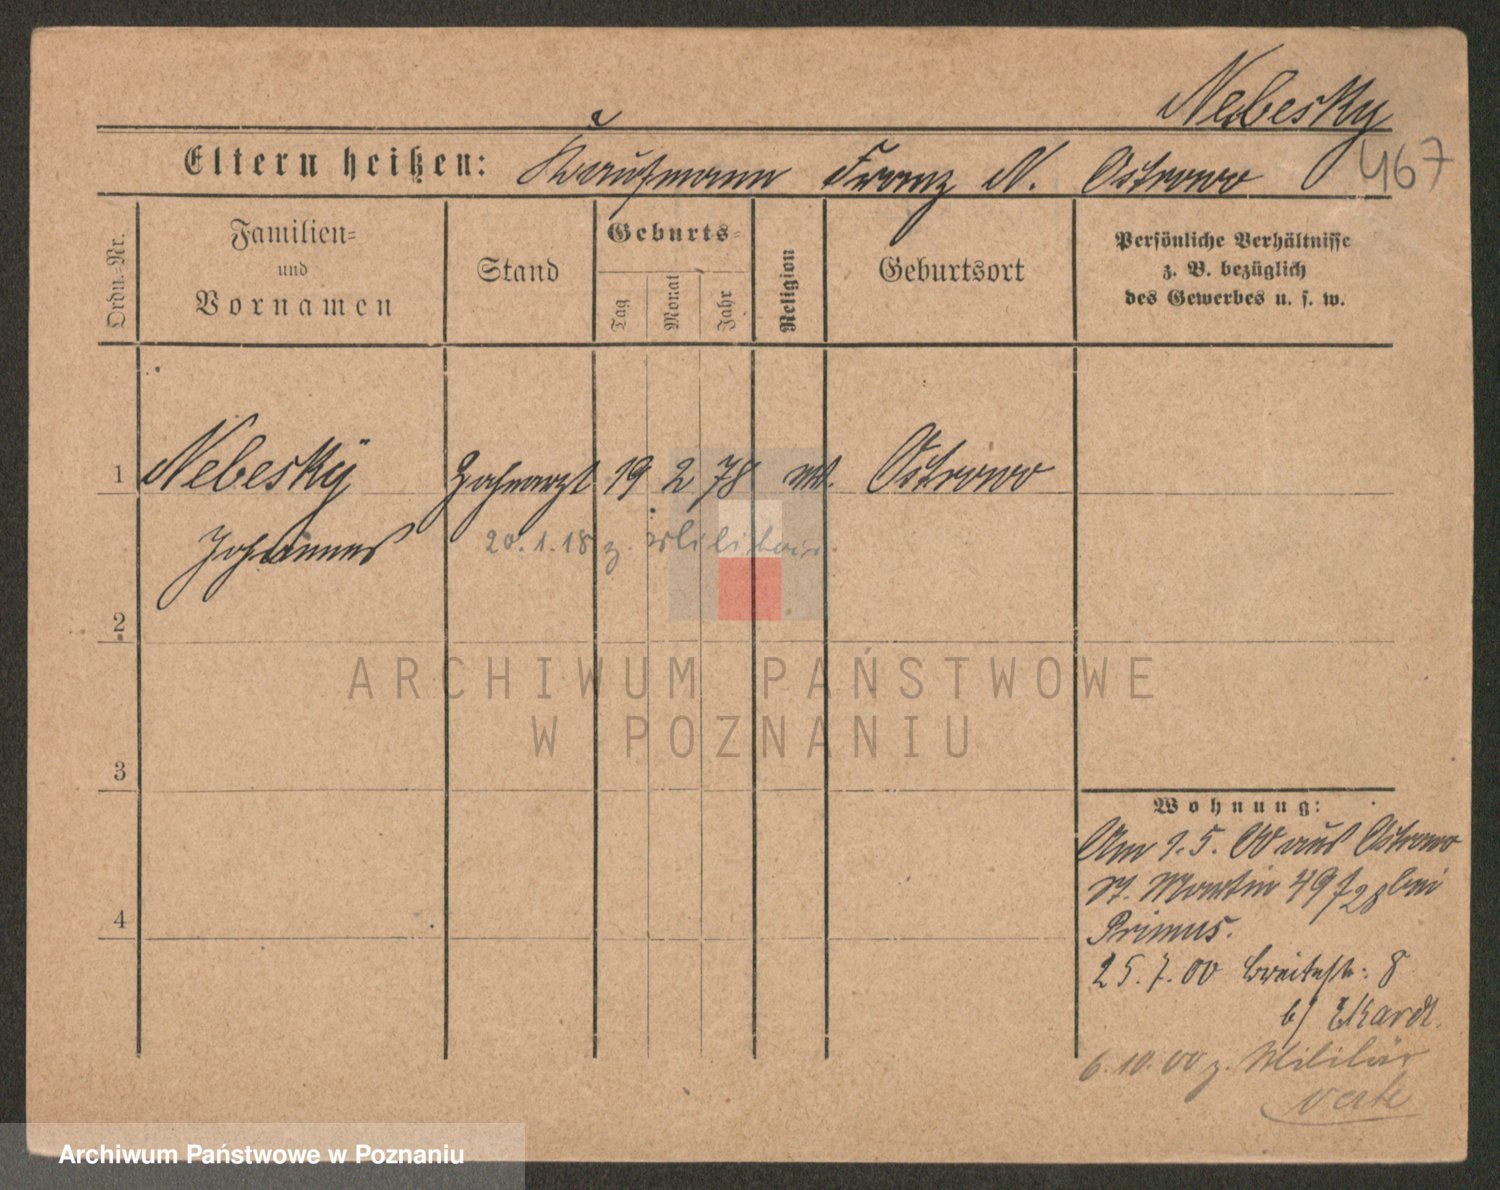 Nebesky
467
Eltern heißen: Kaufmann Franz N. Ostrowo
Ordn.-Nr.
Familien-
und
Vornamen
Stand
Geburts-
Tag
Monat
Jahr
Religion
Geburtsort
Persönliche Verhältnisse
z. B. bezüglich
des Gewerbes u. s. w.
1 Nebesky Zahnarzt 19 2 78 Ostrowo
Johannes
20.1.18 z. Militär.
2
3
4
Wohnung:
Am 1.5.00 aus Ostrowo
St. Martin 49 bei
Primus.
25.7.00 Breitestr. 8
b/ Ekardt.
6.10.00 z. Militär
ARCHIWUM PAŃSTWOWE
W POZNANIU
Archiwum Państwowe w Poznaniu